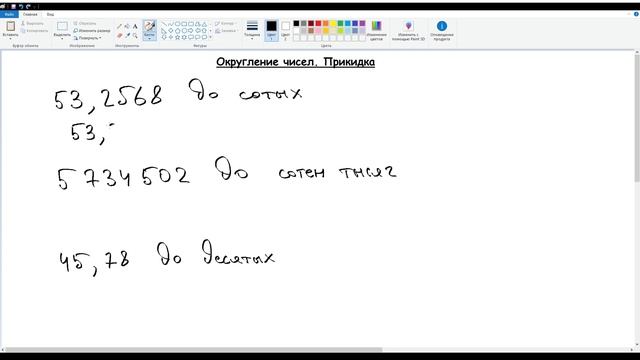 Файл Главная Вид
Вставить Вырезать Копировать Выделить Обрезать Изменить размер Повернуть Кисти Толщина Цвет 1 Цвет 2 Изменение цветов Изменить с помощью Paint 3D Оповещение продукта
Буфер обмена Изображение Инструменты Фигуры Цвета
Округление чисел. Прикидка
53,2568 до сотых
53,
5 734 502 до сотен тысяч
45,78 до десятых